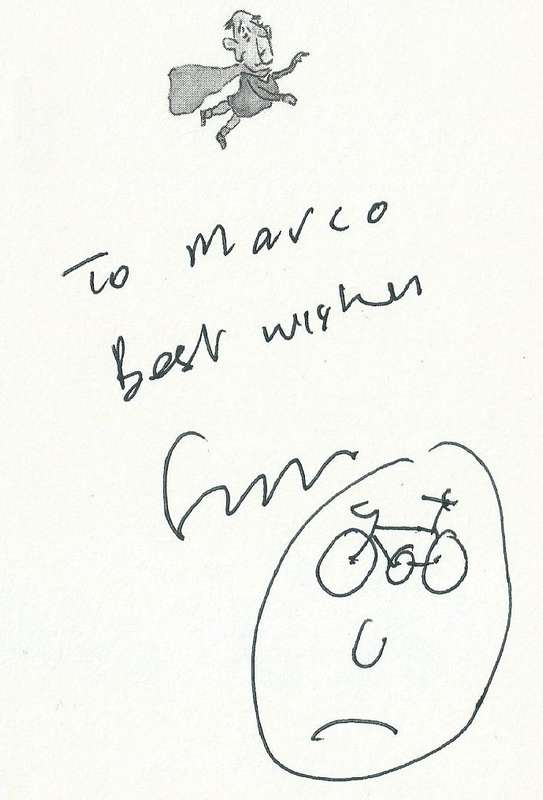 To Marco
Best wishes